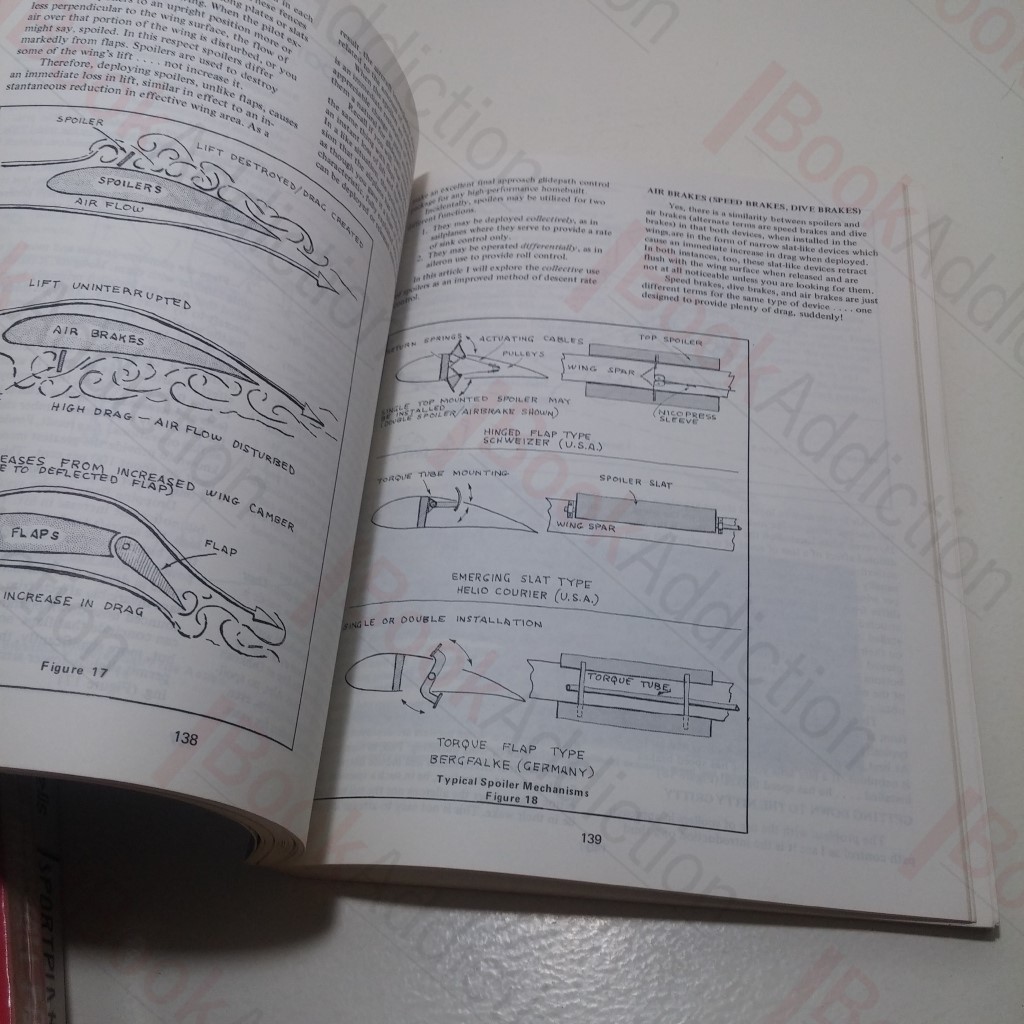 less perpendicular to the wing surface, the flow of
air over that portion of the wing is disturbed, or you
might say, spoiled. In this respect spoilers differ
markedly from flaps. Spoilers are used to destroy
some of the wing's lift . . . . not increase it.
Therefore, deploying spoilers, unlike flaps, causes
an immediate loss in lift, similar in effect to an in-
stantaneous reduction in effective wing area. As a
SPOILER
LIFT DESTROYED/DRAG CREATED
SPOILERS
AIR FLOW
LIFT UNINTERRUPTED
AIR BRAKES
HIGH DRAG — AIR FLOW DISTURBED
EASES FROM INCREASED WING CAMBER
TO DEFLECTED FLAP)
FLAPS
FLAP
INCREASE IN DRAG
Figure 17
138
an excellent final approach glidepath control
for any high-performance homebuilt.
Incidentally, spoilers may be utilized for two
functions.
1. They may be deployed collectively, as in
sailplanes where they serve to provide a rate
of sink control only.
2. They may be operated differentially, as in
aileron use to provide roll control.
In this article I will explore the collective use
spoilers as an improved method of descent rate
AIR BRAKES (SPEED BRAKES, DIVE BRAKES)
Yes, there is a similarity between spoilers and
air brakes (alternate terms are speed brakes and dive
brakes) in that both devices, when installed in the
wings, are in the form of narrow slat-like devices which
cause an immediate increase in drag when deployed.
In both instances, too, these slat-like devices retract
flush with the wing surface when released and are
not at all noticeable unless you are looking for them.
Speed brakes, dive brakes, and air brakes are just
different terms for the same type of device . . . . one
designed to provide plenty of drag, suddenly!
SPRINGS
ACTUATING CABLES
PULLEYS
TOP SPOILER
WING SPAR
SINGLE TOP MOUNTED SPOILER MAY
BE INSTALLED
(DOUBLE SPOILER/AIRBRAKE SHOWN)
(NICOPRESS
SLEEVE
HINGED FLAP TYPE
SCHWEIZER (U.S.A.)
TORQUE TUBE MOUNTING
SPOILER SLAT
WING SPAR
EMERGING SLAT TYPE
HELIO COURIER (U.S.A.)
SINGLE OR DOUBLE INSTALLATION
TORQUE TUBE
TORQUE FLAP TYPE
BERGFALKE (GERMANY)
Typical Spoiler Mechanisms
Figure 18
139
BookAddiction